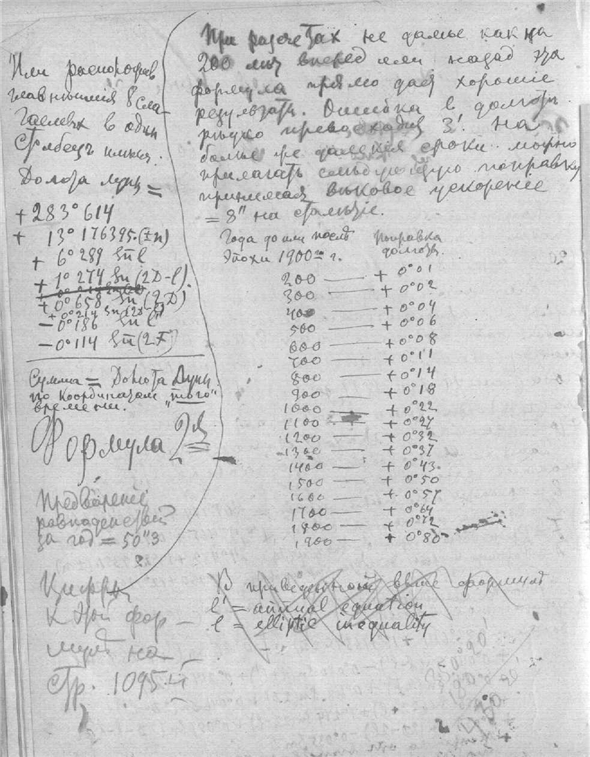 Или распологая
главнейшия 8 сла-
гаемых в один
столбец имеем.
Долгота луны =
+ 283° 614
+ 13° 176395.(±n)
+ 6° 289 Sn l
+ 1° 274 Sn (2D-l).
+ 0° 658 Sn (2D)
+ 0° 214 Sn (2l)
- 0° 186 Sn l'
- 0° 114 Sn (2F)
Сумма = Долгота Луны
по координатам "того"
времени.
Формула 2я
Предварение
равноденствий
за год = 50"3
Цифры
к этой фор-
муле на
стр. 1095-й
При разсчетах не далее как на
200 лет вперед или назад эта
формула прямо дает хорошие
результаты. Ошибка в долготе
редко превосходит 3'. На
более же далекие сроки можно
прилагать следующую поправку
принимая вековое ускорение
= 8" на столетие.
Года до или после
Эпохи 1900 г.
Поправка
долготы
200 — + 0°01
300 — + 0°02
400 — + 0°04
500 — + 0°06
600 — + 0°08
700 — + 0°11
800 — + 0°14
900 — + 0°18
1000 — + 0°22
1100 — + 0°27
1200 — + 0°32
1300 — + 0°37
1400 — + 0°43
1500 — + 0°50
1600 — + 0°57
1700 — + 0°64
1800 — + 0°72
1900 — + 0°80
В приведенной выше формуле
l' = annual equation
l = elliptic inequality